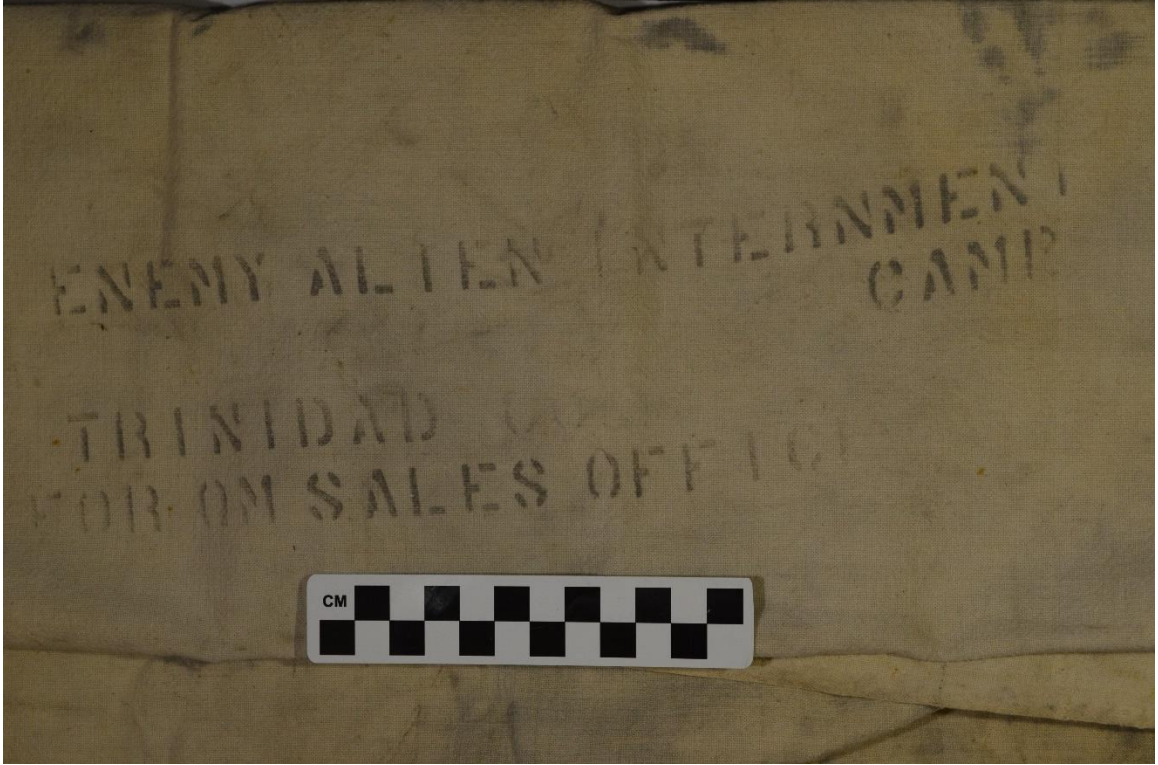 ENEMY ALIEN INTERNMENT
CAMP
TRINIDAD
FOR QM SALES OFFICE
CM